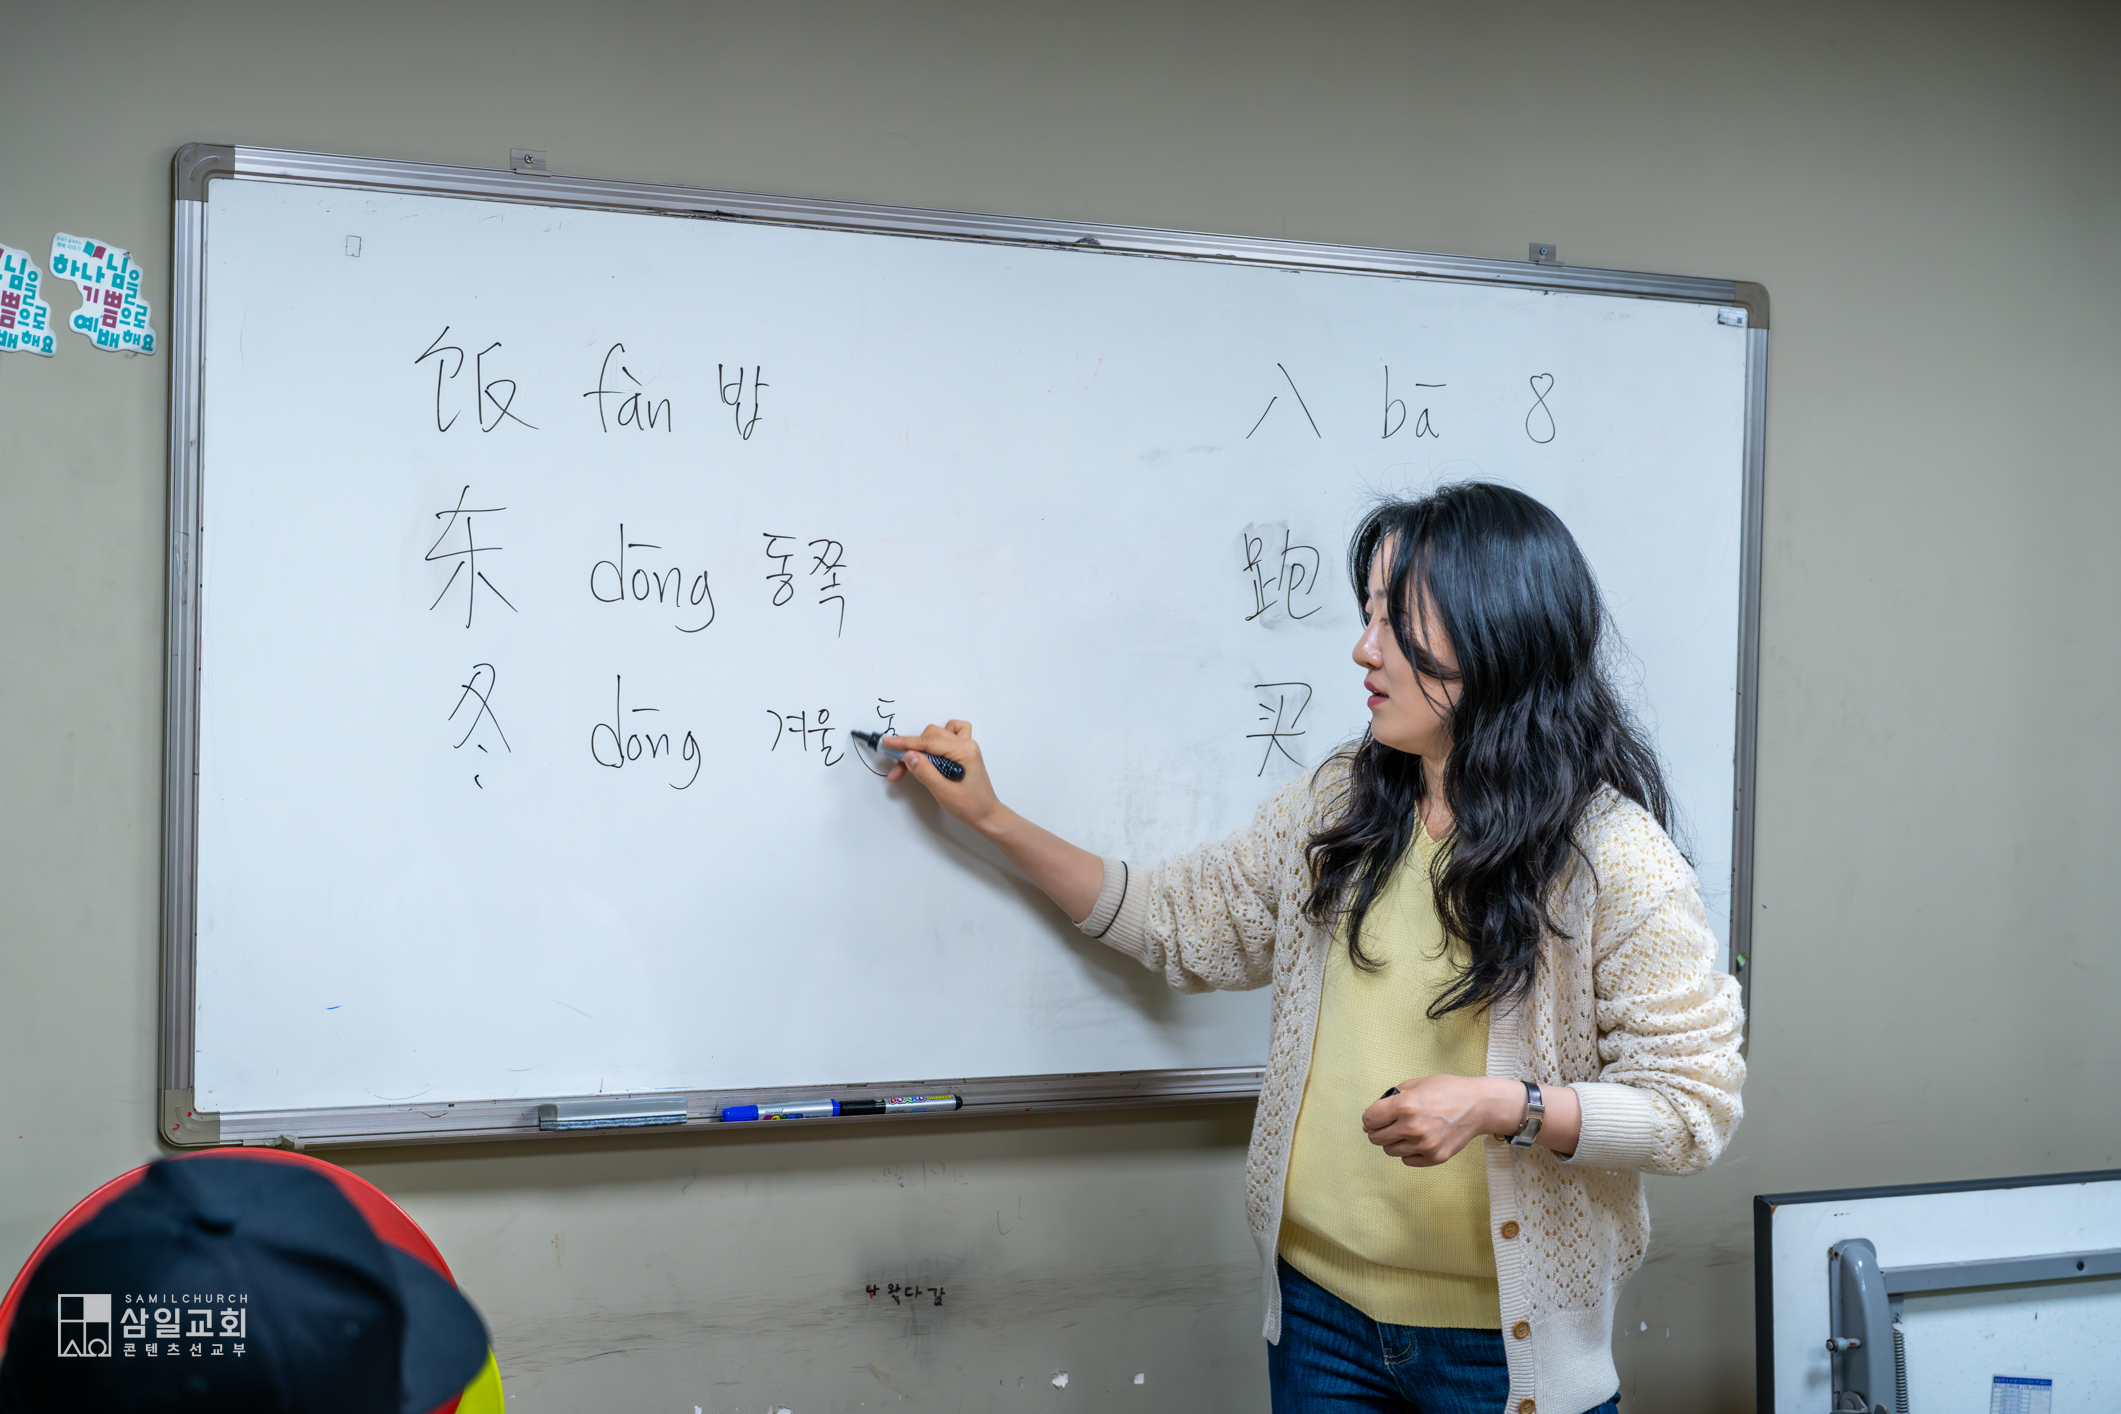 饭 fàn 밥
东 dōng 동쪽
冬 dōng 겨울 동
八 bā 8
跑
买
하나님을
기쁨으로
예배해요
님을
쁨으로
배해요
BOARD
나 왔다 감
SAMILCHURCH
삼일교회
콘텐츠선교부